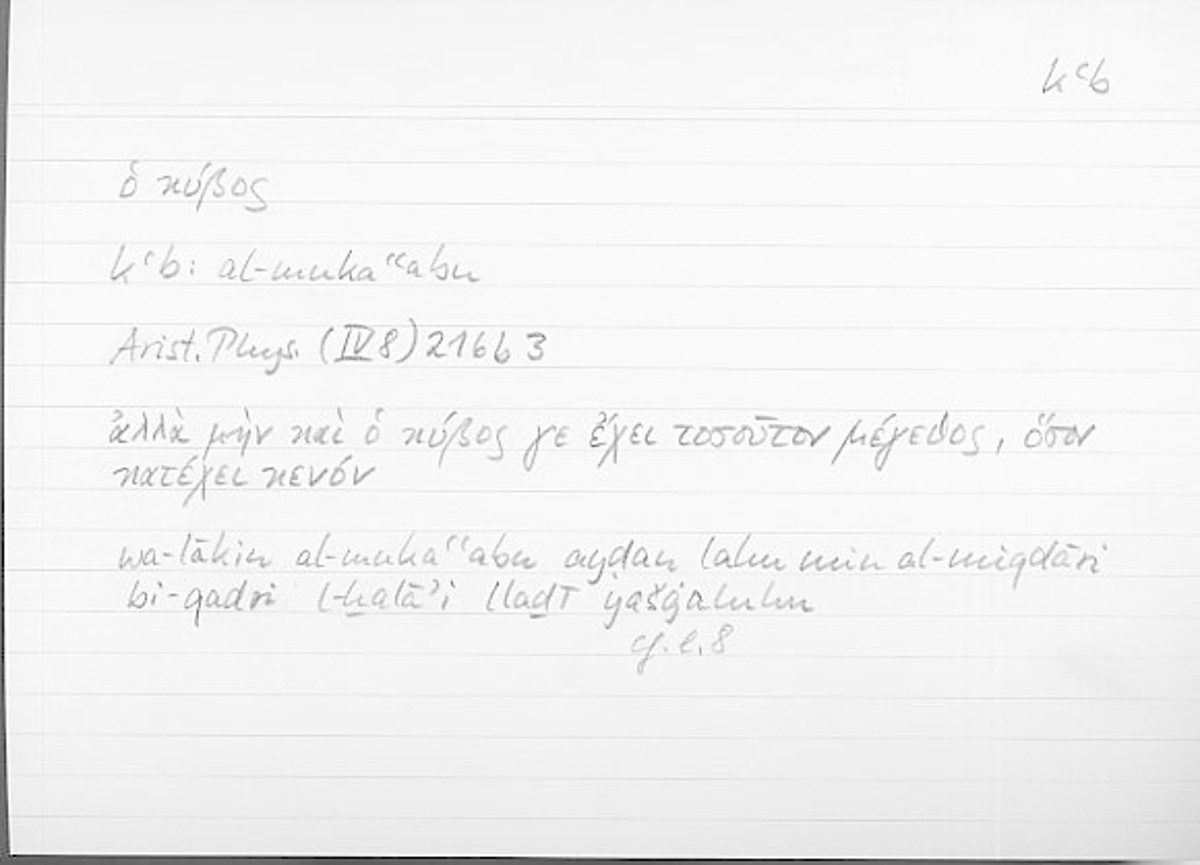 kʿb
ὁ κύβος
kʿb: al-mukaʿʿabu
Arist. Phys. (IV 8) 216b 3
ἀλλὰ μὴν καὶ ὁ κύβος γε ἔχει τοσοῦτον μέγεθος, ὅσον
κατέχει κενόν
wa-lākin al-mukaʿʿabu ayḍan lahu min al-miqdāri
bi-qadri l-ḫalāʾi llaḏī yašġaluhu
cf. l. 8